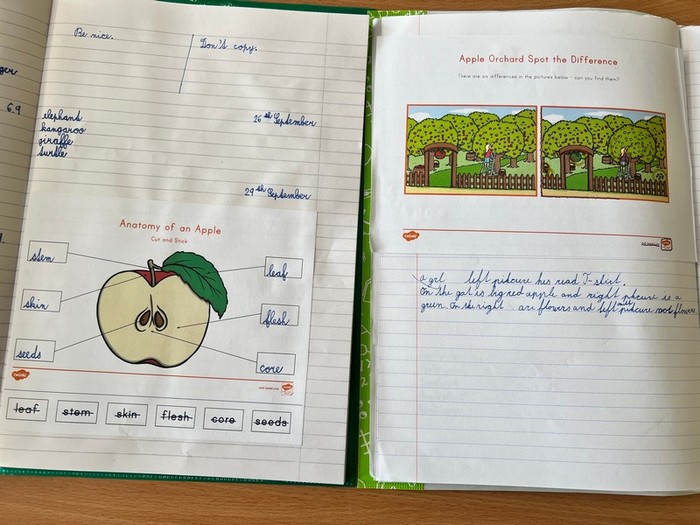 Be nice.
Don't copy.
ger
6.9
elephand
kangaroo
giraffe
turtle
26th September
29th September
Anatomy of an Apple
Cut and Stick
stem
leaf
skin
flesh
seeds
core
twinkl
leaf stem skin flesh core seeds
Apple Orchard Spot the Difference
There are six differences in the pictures below - can you find them?
twinkl
a girl left pidcure hes read T-shirt.
On the gat is big red apple and right pidcure is a
green. On the right are flowers and left pidcure not flowers.